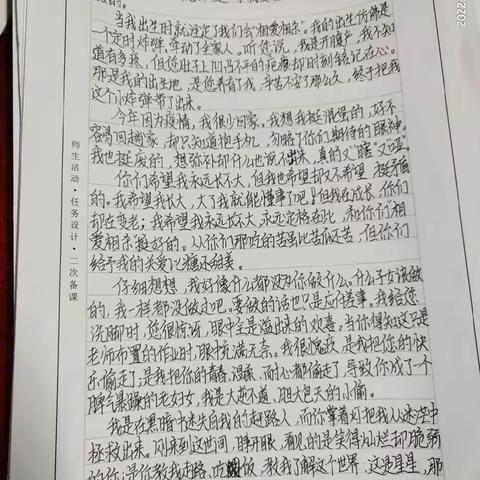 当我出生时就注定了我们会"相爱相杀"。我的出生仿佛是
一个定时炸弹,牵动了全家人。听您说,我是开腹产,我不知
道有多疼,但您肚子上凹凸不平的疤痕却时刻铭记在心。
那是我的出生地,是您养育了我,辛苦不容了那么久,终于把我
这个小炸弹带了出来。
今年因为疫情,我很少回家。我想我挺混蛋的,好不
容易回趟家,却只知道把手机,忽略了你们期待的眼神。
我也挺废的,想弥补却什么也说不出来,真的又"瞎"又"哑"。
你们希望我永远长不大,但我也希望却又不希望,挺矛盾
的。我希望我长大,大了我就能懂事了吧!但我在成长,你们
却在变老;我希望我永远长不大,永远定格在此,和你们"相
爱相杀"挺好的。从你们那吃的苦虽比苦瓜还苦,但你们
给予我的关爱比糖还甜美。
仔细想想,我好像什么都没为你做什么。什么子女该做
的,我一样都没做过吧。要做的话也只是应付差事。我给您
洗脚时,您很惊讶,眼中全是溢出来的欢喜。当你得知这只是
老师布置的作业时,眼中充满无奈。我很愧疚,是我把您的快
乐偷走了,是我把你的青春、温柔、耐心都偷走了,导致你成了一个
脾气暴躁的老妇女,我是大逆不道、胆大包天的小偷。
我是在黑暗中迷失自我的赶路人,而你掌着灯把我从迷茫中
拯救出来。刚来到这世间,睁开眼,看见的是笑得灿烂却脆弱
的你;是你教我走路、吃饭,教我了解这个世界,这是星星,那
师生活动·任务设计·二次备课
2022